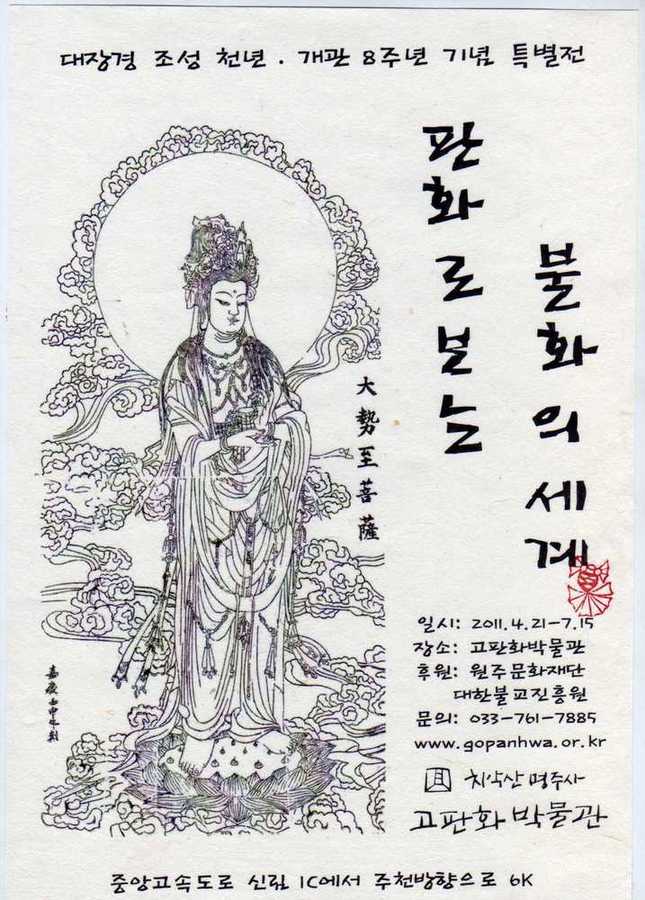 대장경 조성 천년 . 개관 8주년 기념 특별전
판화로 보는
불화의 세계
大勢至菩薩
일시: 2011.4.21-7.15
장소: 고판화박물관
후원: 원주문화재단
대한불교진흥원
문의: 033-761-7885
www.gopanhwa.or.kr
치악산 명주사
고판화박물관
중앙고속도로 신림 IC에서 주천방향으로 6K